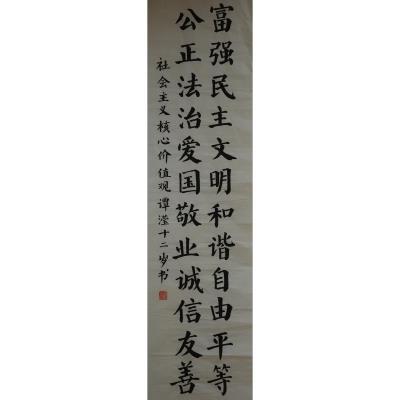 富强民主文明和谐自由平等
公正法治爱国敬业诚信友善
社会主义核心价值观 谭滢十二岁书